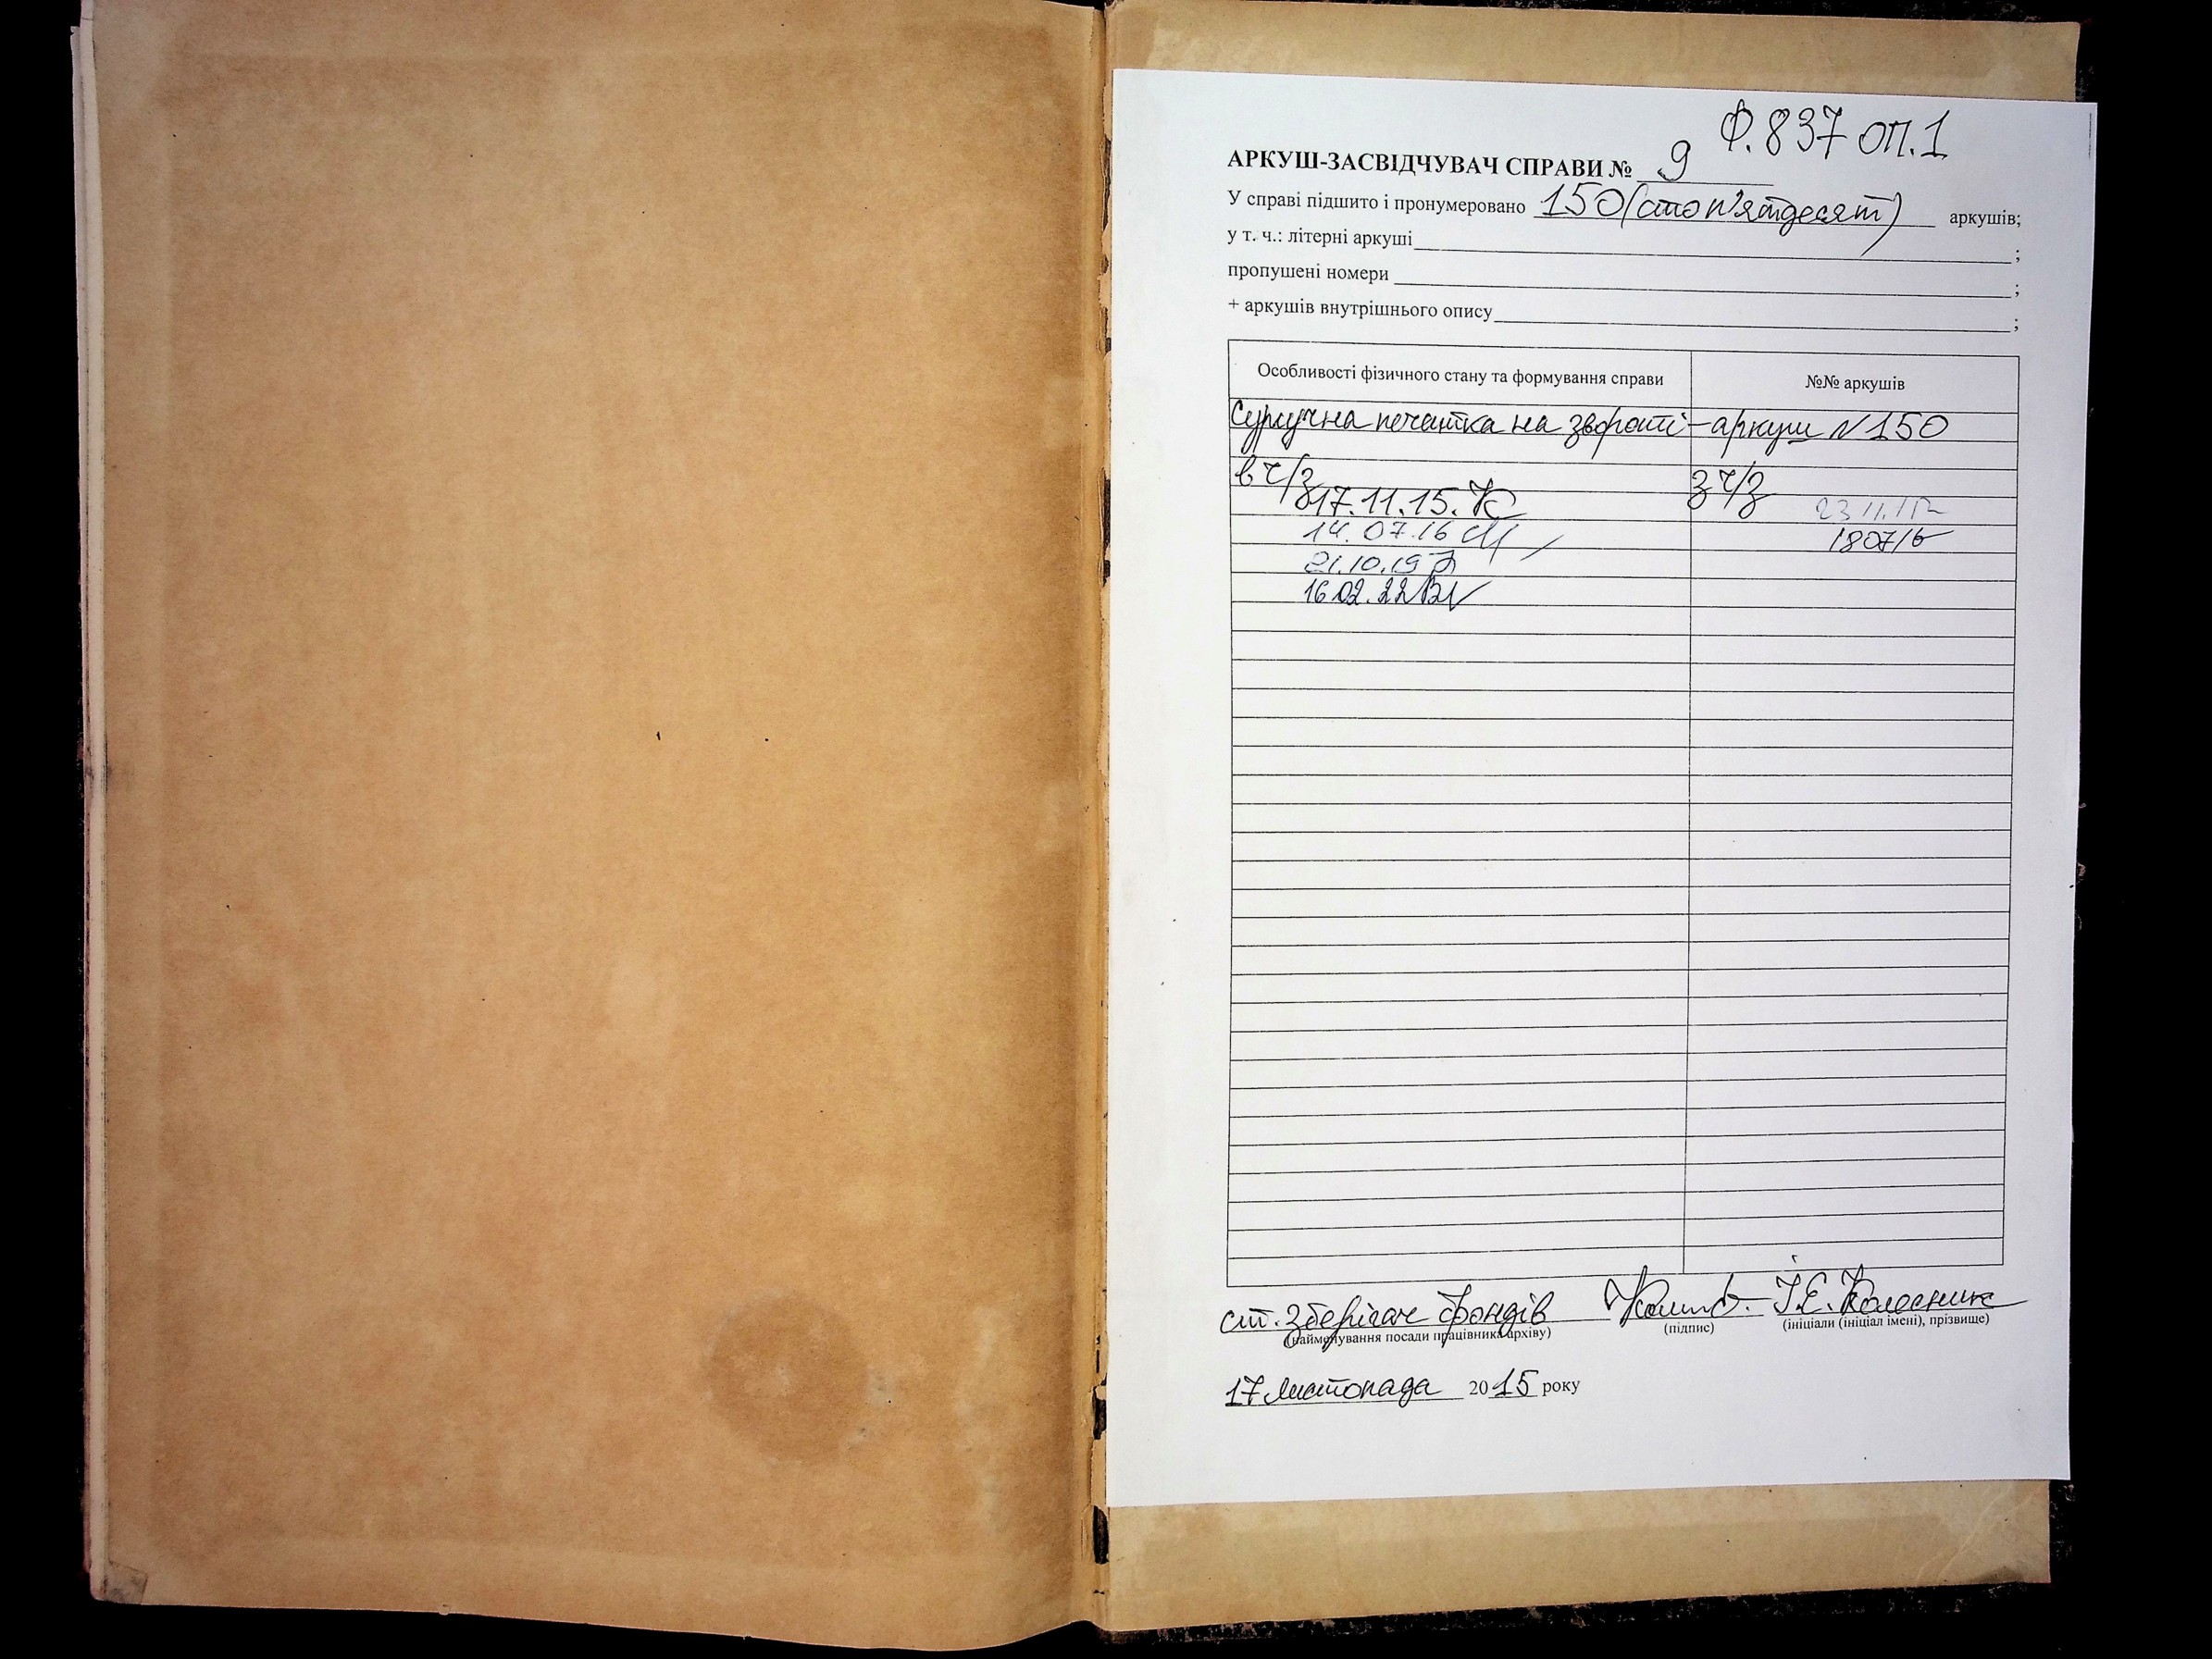 Ф.837 оп.1
АРКУШ-ЗАСВІДЧУВАЧ СПРАВИ № 9
У справі підшито і пронумеровано 150 (сто п'ятдесят) аркушів;
у т. ч.: літерні аркуші ;
пропущені номери ;
+ аркушів внутрішнього опису ;
Особливості фізичного стану та формування справи №№ аркушів
Сургучна печатка на звороті - аркуш №150
в ч/з з ч/з
17.11.15.
14.07.16 180716
21.10.19
16.02.22
ст. зберігач фондів І.Є. Колесник
(найменування посади працівника архіву) (підпис) (ініціали (ініціал імені), прізвище)
17 листопада 2015 року